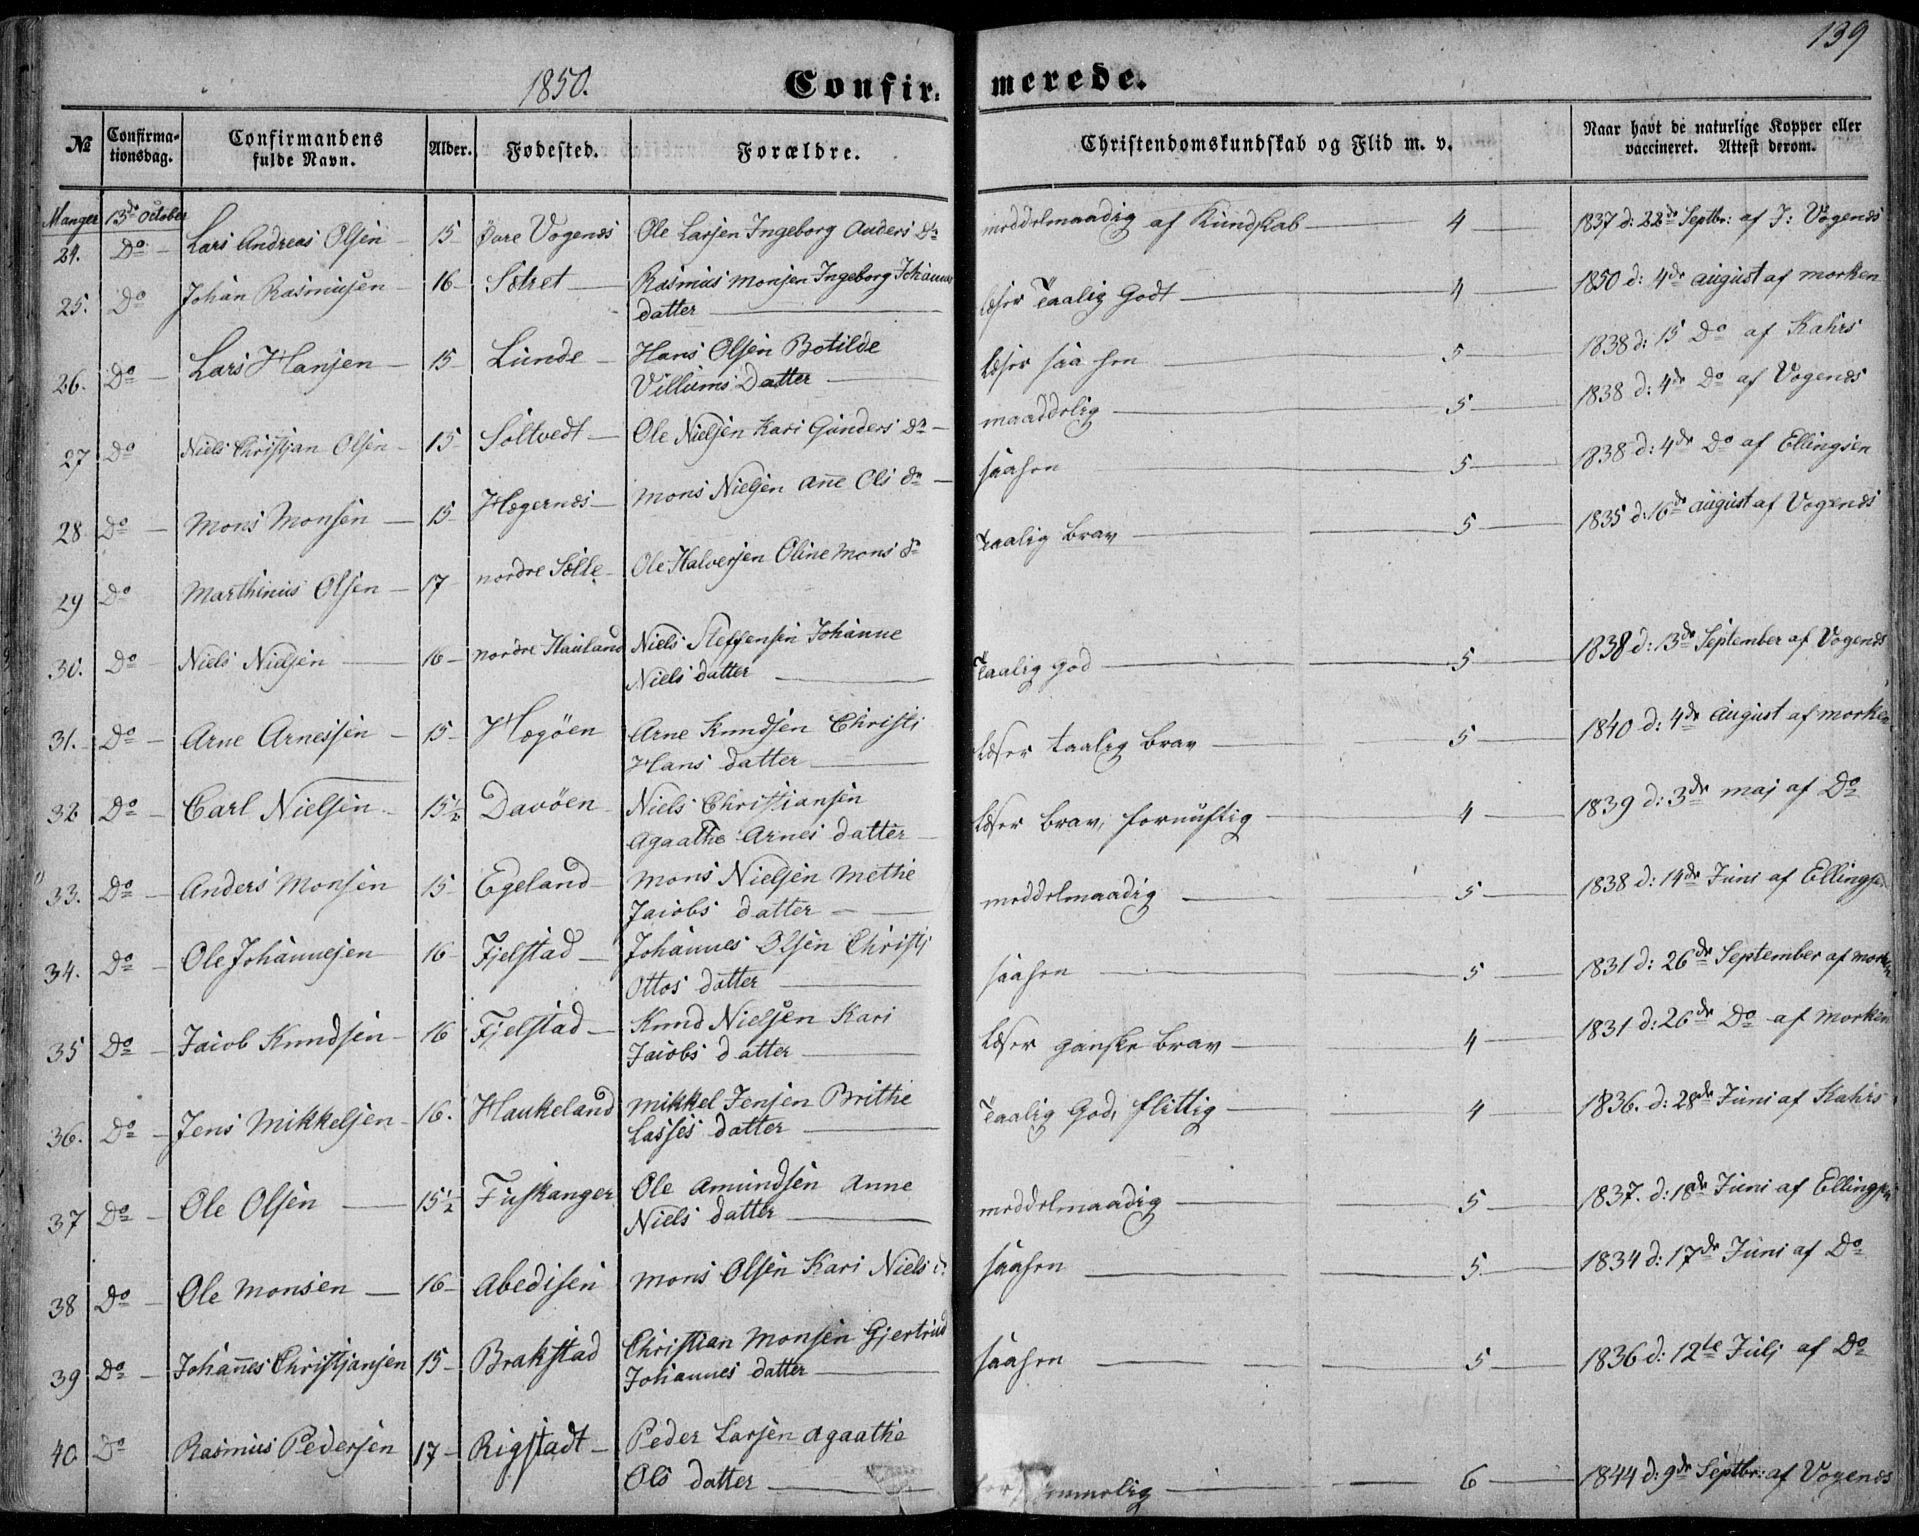 139
1850. Confir: merede.
№ Confirma-tionsdag. Confirmandens fulde Navn. Alder. Fodested. Forældre. Christendomskundskab og Flid m. v. Naar havt de naturlige Kopper eller vaccineret. Attest derom.
Manger 13de October
24. Do Lars Andreas Olsen 15 Øvre Vogenæs Ole Larsen Ingeborg Anders Dr middelmaadig af Kundskab 4 1837 d: 22de Septbr: af J: Vogenæs
25. Do Johan Rasmusen 16 Sætret Rasmus Monsen Ingeborg Johannes læser Taalig Godt 4 1850 d: 4de august af morken
datter
26. Do Lars Hansen 15 Lunde Hans Olsen Botilde læser saa hen 5 1838 d: 15 Do af Kahrs
Villums Datter
27 Do Niels Christjan Olsen 15 Soltvedt Ole Nielsen Kari Gunders Dr maadelig 5 1838 d: 4de Do af Vogenæs
28 Do Mons Monsen 15 Hægernæs Mons Nielsen Anne Ols Dr saahen 5 1838 d: 4de Do af Ellingsen
29 Do Marthinus Olsen 17 nordre Sølle Ole Halversen Oline Mons Dr Taalig brav 5 1835 d: 16de august af Vogenæs
30. Do Niels Nielsen 16 nordre Hauland Niels Steffensen Johanne Taalig god 5 1838 d: 13de September af Vogenæs
Niels datter
31. Do Arne Arnessen 15 Hægøen Arne Knudsen Christi læser taalig brav 5 1840 d: 4de august af morken
Hans datter
32 Do Carl Nielsen 15½ Davøen Niels Christiansen læser brav, fornuftig 4 1839 d: 3de maj af Do
Agaathe Arnes datter
33. Do Anders Monsen 15 Egeland Mons Nielsen Methe middelmaadig 5 1838 d: 14de Juni af Ellingsen
Jacobs datter
34. Do Ole Johannesen 16 Fjelstad Johannes Olsen Christi saahen 5 1831 d: 26de September af morken
Ottos datter
35 Do Jacob Knudsen 16 Fjelstad Knud Nielsen Kari læser ganske brav 4 1831 d: 26de Do af morken
Jacobs datter
36. Do Jens Mikkelsen 16. Haukeland Mikkel Jensen Brithe Taalig God, flittig 4 1836. d: 28de Juni af Kahrs
Lasses datter
37 Do Ole Olsen 15½ Fuskanger Ole Amundsen Anne middelmaadig 5 1837. d: 18de Juni af Ellingsen
Niels datter
38 Do Ole Monsen 16 Abedisen Mons Olsen Kari Niels d: saahen 5 1834 d: 17de Juni af Do
39 Do Johannes Christjansen 15 Brakstad Christian Monsen Gjertrud saahen 5 1836 d: 12te Juli af Do
Johannes datter
40 Do Rasmus Pedersen 17 Rigstadt Peder Larsen Agaathe 6 1844 d: 9de Septbr: af Vogenæs
Ols datter